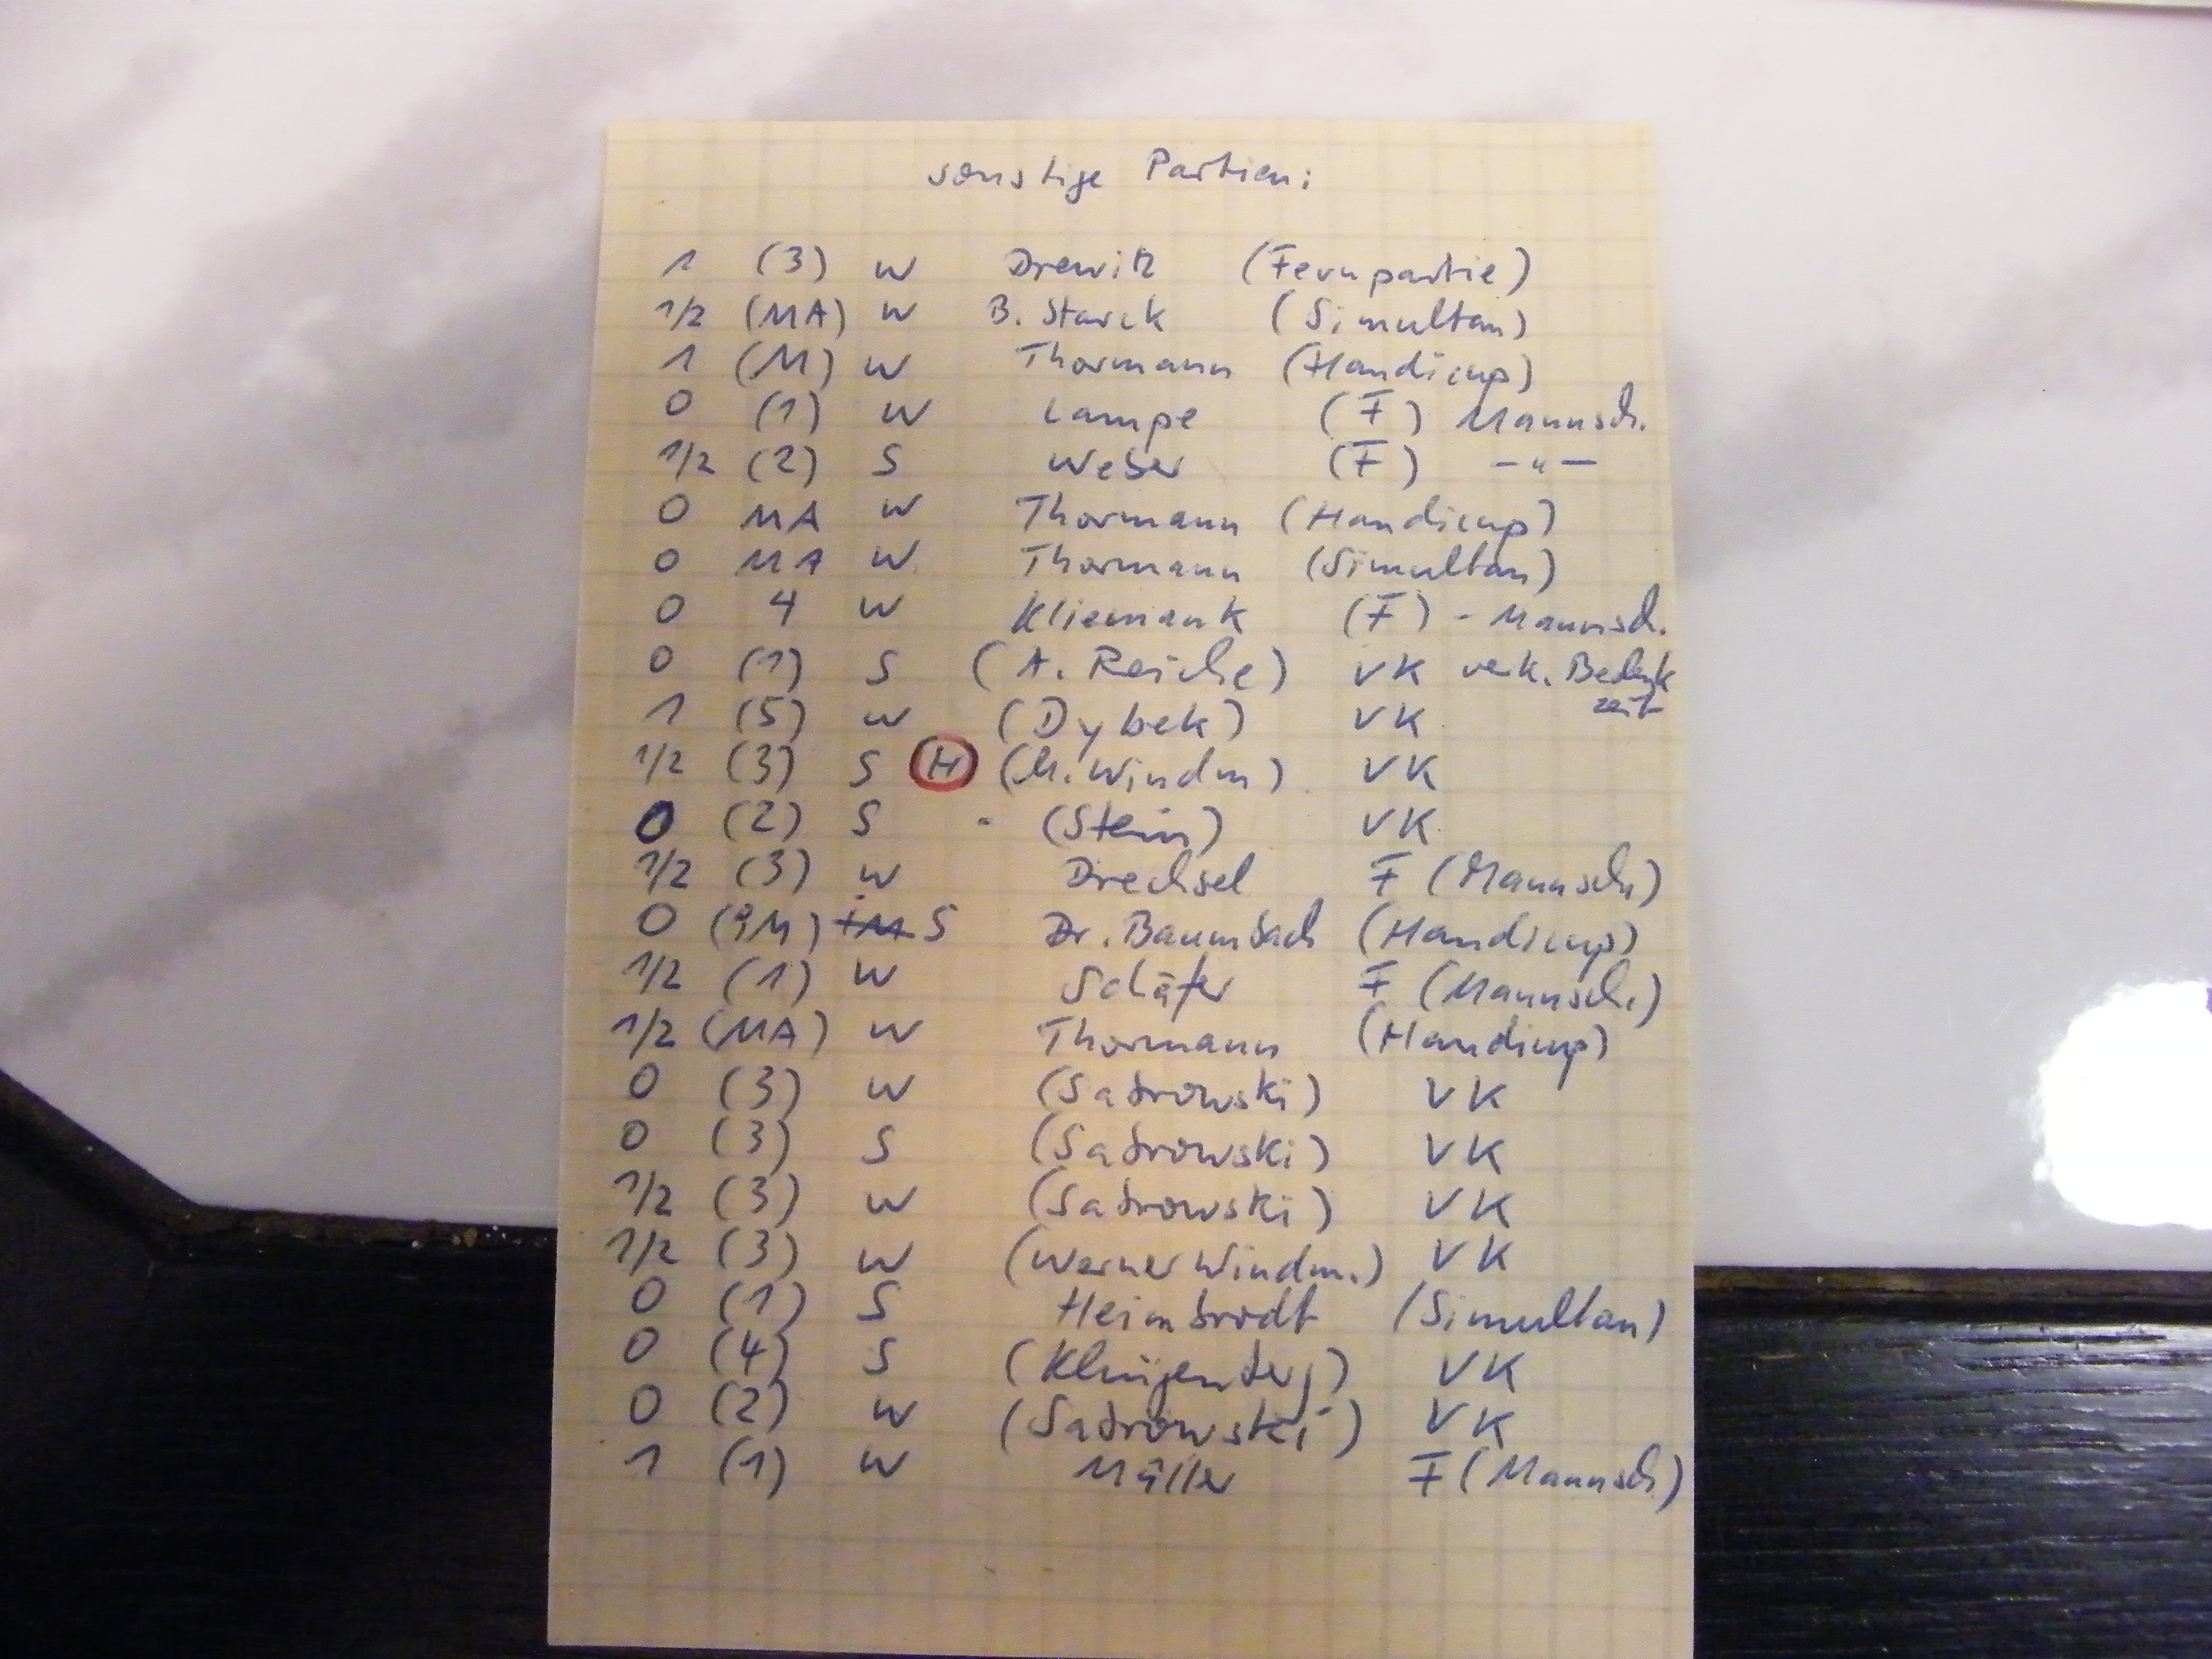 sonstige Partien:
1 (3) W Drewitz (Fernpartie)
1/2 (MA) W B. Starck (Simultan)
1 (M) W Thormann (Handicap)
0 (1) W Lampe (F) Mannsch.
1/2 (2) S Weber (F) – " –
0 MA W Thormann (Handicap)
0 MA W Thormann (Simultan)
0 4 W Kliemank (F) - Mannsch.
0 (1) S (A. Reiche) VK verk. Bedenk
zeit
1 (5) W (Dybek) VK
1/2 (3) S H (M. Windm) VK
0 (2) S (Stein) VK
1/2 (3) W Drechsel F (Mannsch)
0 (GM) IM S Dr. Baumbach (Handicap)
1/2 (1) W Schäfer F (Mannsch.)
1/2 (MA) W Thormann (Handicap)
0 (3) W (Sabrowski) VK
0 (3) S (Sabrowski) VK
1/2 (3) W (Sabrowski) VK
1/2 (3) W (Werner Windm.) VK
0 (1) S Heimbrodt (Simultan)
0 (4) S (Klingenberg) VK
0 (2) W (Sabrowski) VK
1 (1) W Müller F (Mannsch)